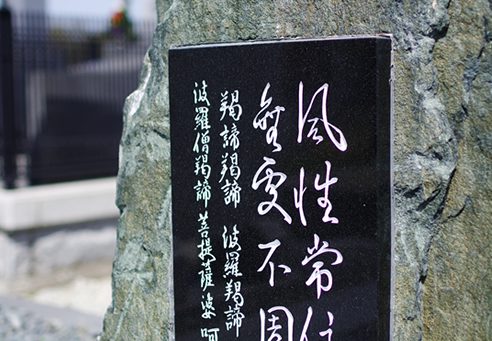 風性常住
無處不周
羯諦羯諦 波羅羯諦
波羅僧羯諦 菩提薩婆呵